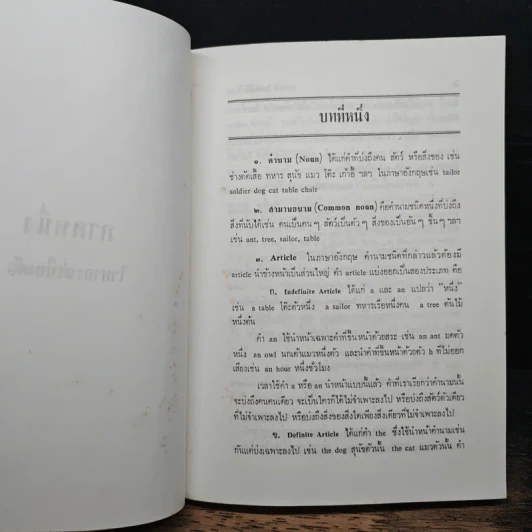 บทที่หนึ่ง
๑. คำนาม (Noun) ได้แก่คำที่บ่งถึงคน สัตว์ หรือสิ่งของ เช่น
ช่างตัดเสื้อ ทหาร สุนัข แมว โต๊ะ เก้าอี้ ฯลฯ ในภาษาอังกฤษเช่น tailor
soldier dog cat table chair
๒. สามานยนาม (Common noun) คือคำนามชนิดหนึ่งที่บ่งถึง
สิ่งที่นับได้เช่น คนเป็นคน ๆ สัตว์เป็นตัว ๆ สิ่งของเป็นอัน ๆ ชิ้น ๆ ฯลฯ
เช่น ant, tree, sailor, table
๓. Article ในภาษาอังกฤษ คำนามชนิดที่กล่าวแล้วต้องมี
article นำข้างหน้าเป็นส่วนใหญ่ คำ article แบ่งออกเป็นสองประเภท คือ
ก. Indefinite Article ได้แก่ a และ an แปลว่า "หนึ่ง"
เช่น a table โต๊ะตัวหนึ่ง a sailor ทหารเรือหนึ่งคน a tree ต้นไม้
หนึ่งต้น
คำ an ใช้นำหน้าเฉพาะคำที่ขึ้นหน้าด้วยสระ เช่น an ant มดตัว
หนึ่ง an owl นกเค้าแมวหนึ่งตัว และนำคำที่ขึ้นหน้าด้วยตัว h ที่ไม่ออก
เสียงเช่น an hour หนึ่งชั่วโมง
เวลาใช้คำ a หรือ an นำหน้าแบบนี้แล้ว คำที่เราเรียกว่าคำนามนั้น
จะบ่งถึงคนคนเดียว จะเป็นใครก็ได้ไม่จำเพาะลงไป หรือบ่งถึงสัตว์ตัวเดียว
ที่ไม่จำเพาะลงไป หรือบ่งถึงสิ่งของสิ่งใดเพียงสิ่งเดียวที่ไม่จำเพาะลงไป
ข. Definite Article ได้แก่คำ the ซึ่งใช้นำหน้าคำนามเช่น
กันแต่บ่งเฉพาะลงไป เช่น the dog สุนัขตัวนั้น the cat แมวตัวนั้น คำ